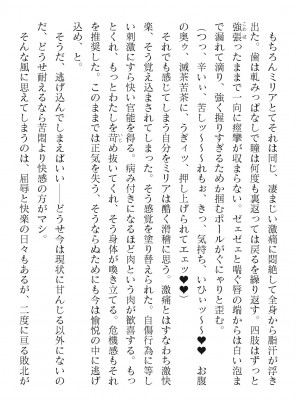 もちろんミリアとて同じ、凄まじい激痛に悶絶して全身から脂汗が浮き
出た。歯は軋みっぱなしで瞳は何度も裏返っては戻るを繰り返す。四肢はずっと
強張ったままで一向に痙攣が収まらない。ゼェゼェと喘ぐ唇の端からは白い泡ま
で漏れて滴り、強く握りすぎるため掴むポールがぐにゃりと歪む。
（つっ、辛いぃ、苦しッ〜〜〜れもぉ、きっ、気持ち、いひぃッ〜〜❤❤　お腹
の奥ゥ、滅茶苦茶に、うぎィッ、押し上げられてェェッ❤❤❤
それでも感じてしまう自分をミリアは酷く滑稽に思う。激痛とはすなわち激快
楽、そう覚え込まされてしまった。そう感覚を塗り替えられた。自傷行為に等し
い刺激にすら快い官能を得る。病み付きになるほど肉という肉が歓喜する。もっ
とくれ、もっとわたしを苛め抜いてくれ、そう身体が喚き立てる。危機感もそれ
を推奨した。このままでは正気を失う、そうならぬためにも今は愉悦の中に逃げ
込め、と。
そうだ、逃げ込んでしまえばいい――どうせ今は現状に甘んじる以外にないの
だ、どうせ耐えるなら苦悶より快感の方がマシ。
そんな風に思えてしまうのは、屈辱と快楽の日々もあるが、一二度に亘る敗北が